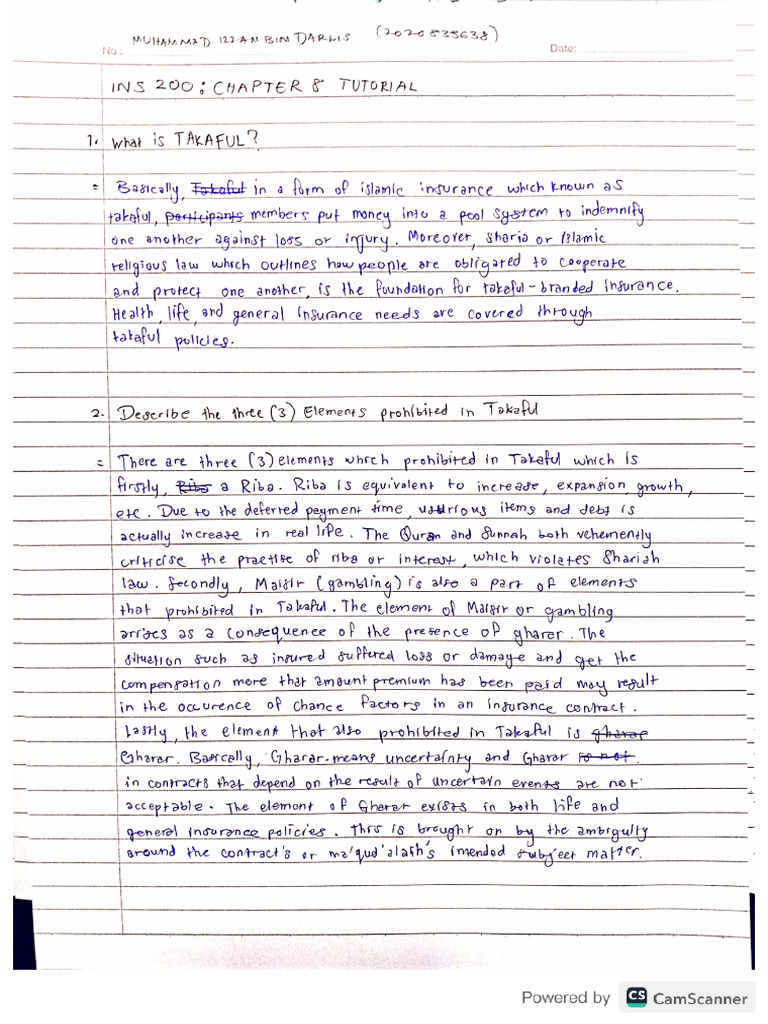 MUHAMMAD IZZAN BIN DARLIS (2020835638)
No.: Date:
INS 200: CHAPTER 8 TUTORIAL
1. What is TAKAFUL?
= Basically, Takaful in a form of islamic insurance which known as
takaful, participants members put money into a pool system to indemnify
one another against loss or injury. Moreover, sharia or Islamic
religious law which outlines how people are obligated to cooperate
and protect one another, is the foundation for takeful-branded insurance.
Health, life, and general insurance needs are covered through
takaful policies.
2. Describe the three (3) Elements prohibited in Takaful
= There are three (3) elements which prohibited in Takaful which is
firstly, Riba a Riba. Riba is equivalent to increase, expansion, growth,
etc. Due to the deferred payment time, usurious items and debt is
actually increase in real life. The Quran and Sunnah both vehemently
criticise the practise of riba or interest, which violates Shariah
law. Secondly, Maisir (gambling) is also a part of elements
that prohibited in Takaful. The element of Maisir or gambling
arises as a consequence of the presence of gharar. The
situation such as insured suffered loss or damage and get the
compensation more that amount premium has been paid may result
in the occurence of chance factors in an insurance contract.
Lastly, the element that also prohibited in Takaful is gharar
Gharar. Basically, Gharar means uncertainty and Gharar is not
in contracts that depend on the result of uncertain events are not
acceptable. The element of Gharar exists in both life and
general insurance policies. This is brought on by the ambiguity
around the contract's or ma'qud'alaih's intended subject matter.
Powered by CS CamScanner